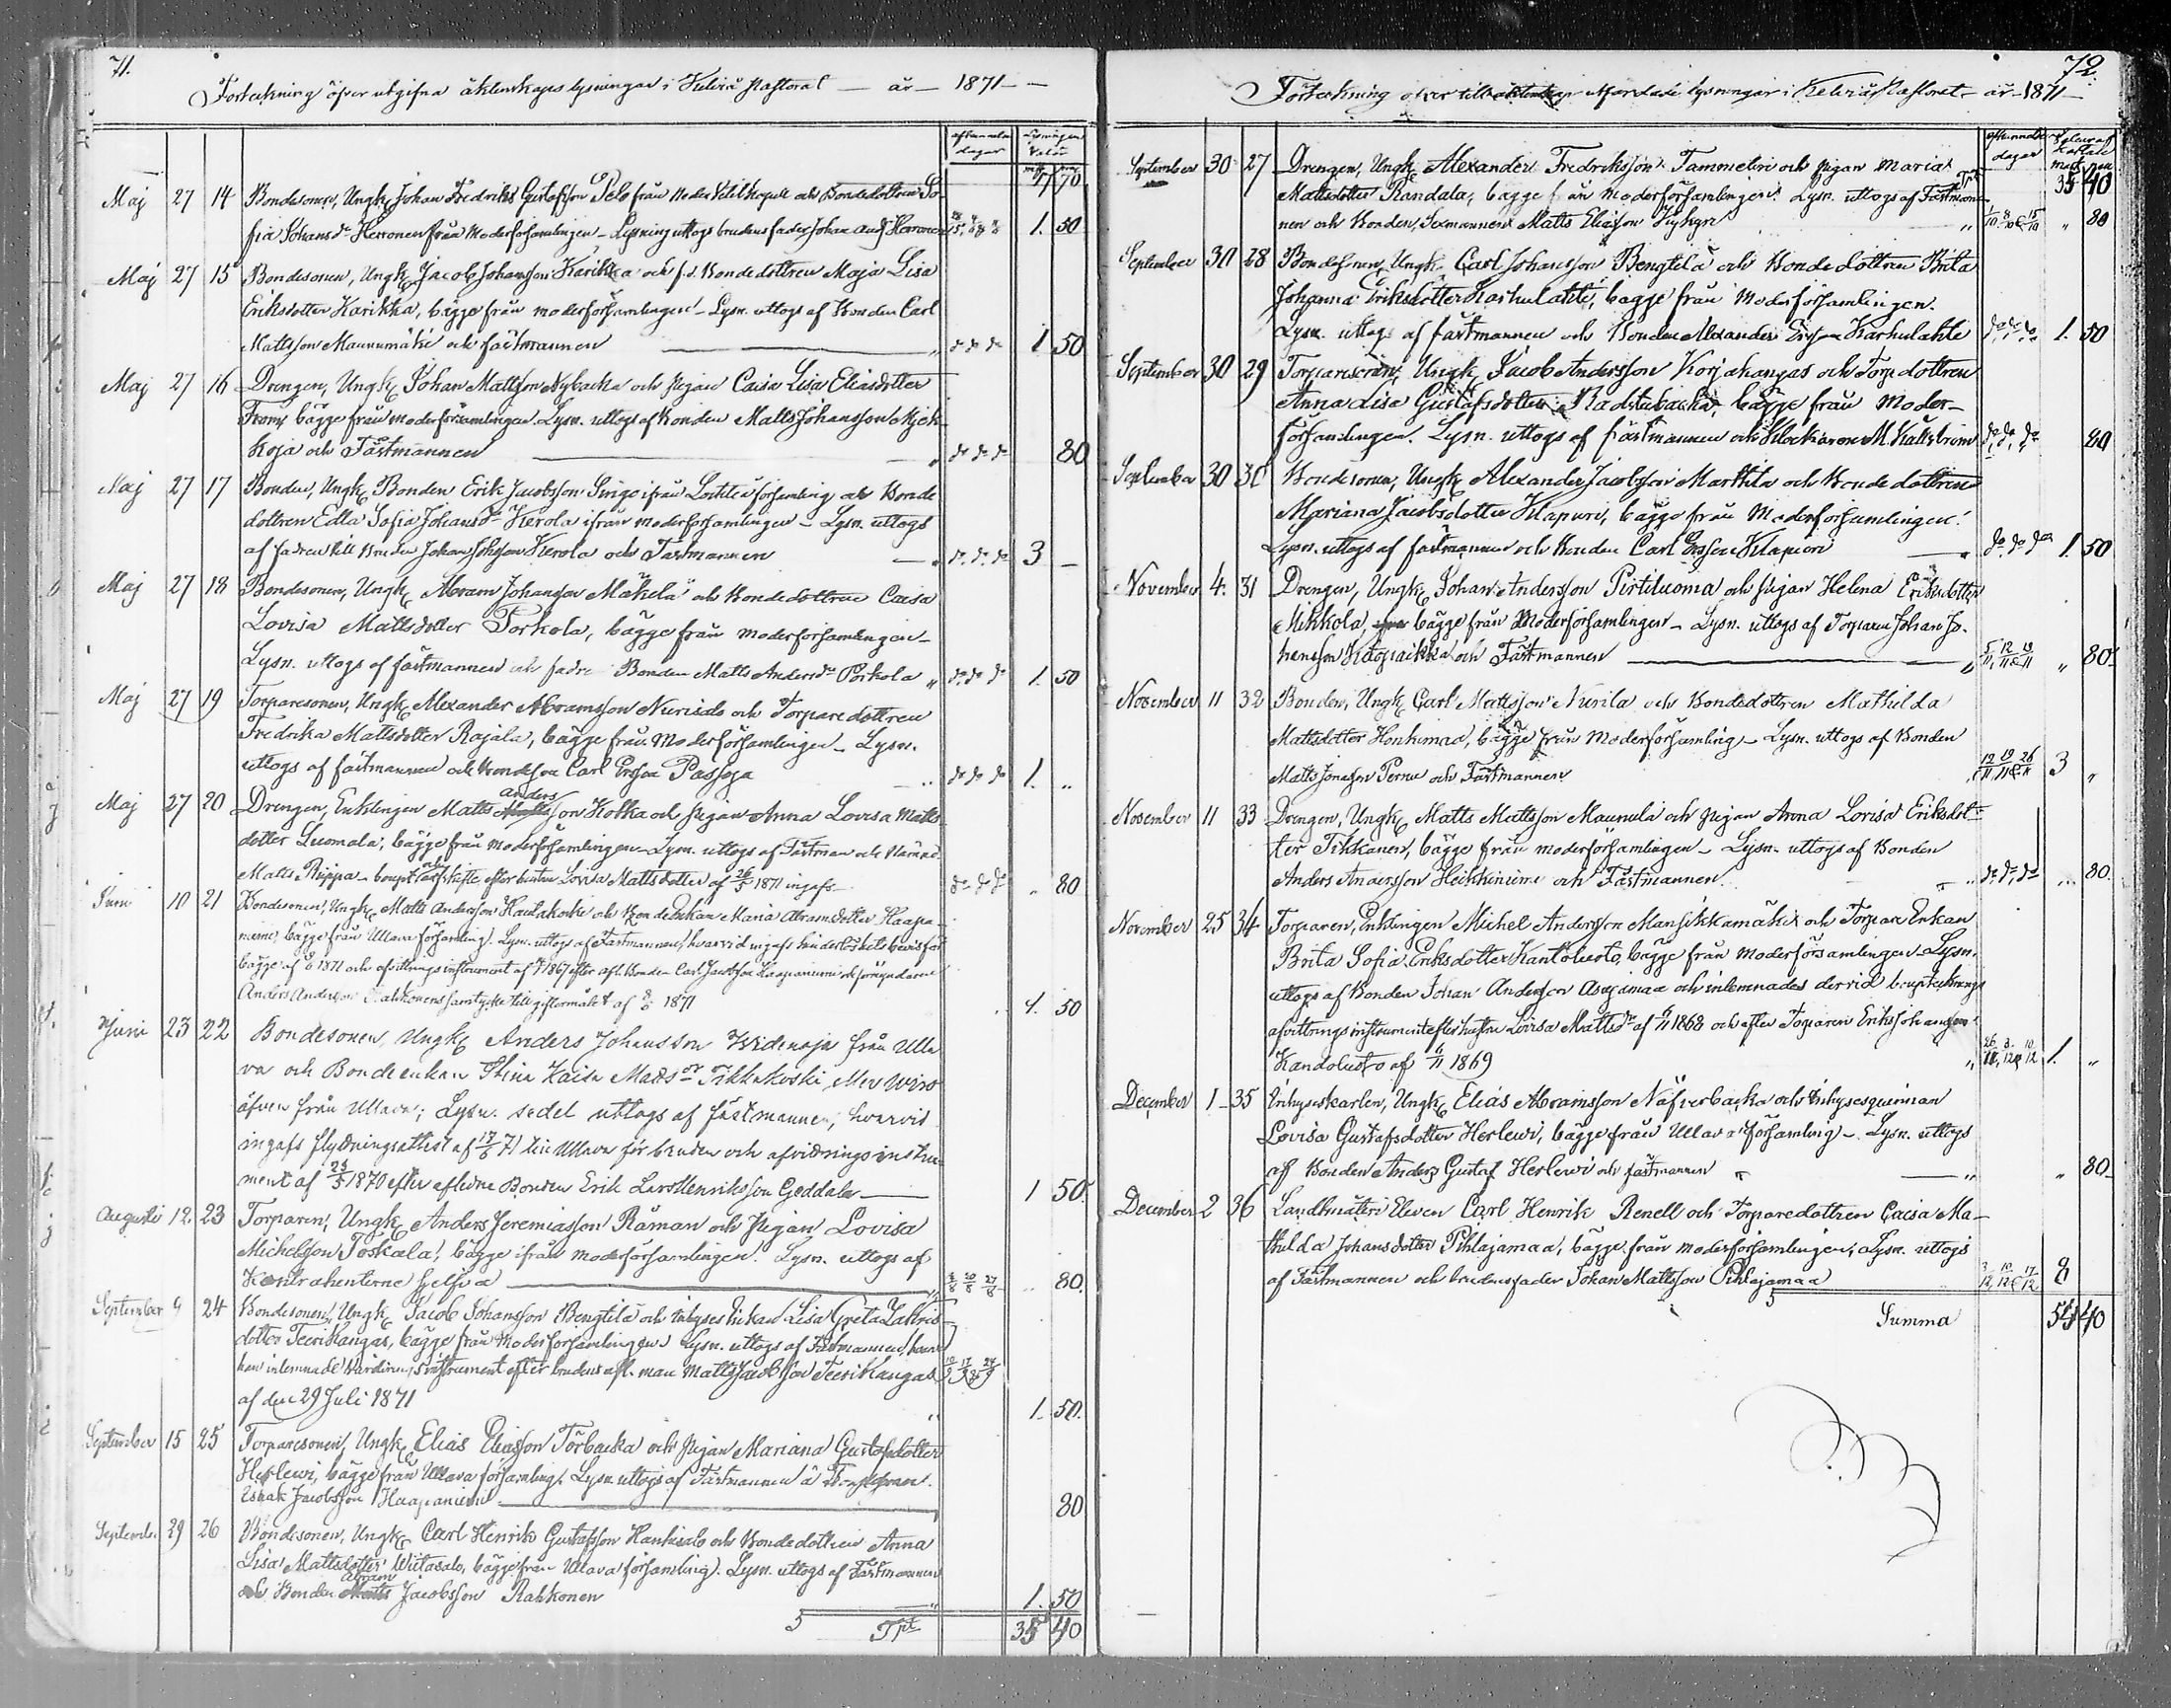 71.
Förteckning öfver utgifna äktenskaps lysningar i Kelviå Pastorat — år — 1871 —
dagar
17 70
Maj 27 14 Bondesonen, Ungk. Johan Fredriks Gustafsson Pelo från Neder Vetil Kapell och Bondedottren So-
fia Johansdr Herronen från moderförsamlingen – Lysning uttogs brudens fader Johan And. Herronen 1. 50
Maj 27 15 Bondesonen, Ungk. Jacob Johansson Karikka och f.d. Bondedottren Maja Lisa
Eriksdotter Karikka, bägge från moderförsamlingen – Lysn. uttogs af Bonden Carl
Mattsson Maunumäki och fästmannen " do do do 1 50
Maj 27 16 Drengen, Ungk. Johan Mattsson Nybacka och Pigan Caisa Lisa Eliasdotter
bägge från moderförsamlingen. Lysn. uttogs af Bonden Matts Johansson
koja och Fästmannen do do do 80
Maj 27 17 Bonden, Ungk. Bonden Erik Jacobsson ifrån Lochteå församling och Bonde
dottren Edla Sofia Johansdr Kerola ifrån moderförsamlingen – Lysn. uttogs
af fadren till bruden Johan Johsson Kerola och Fästmannen do do do 3 —
Maj 27 18 Bondesonen, Ungk. Abram Johansson Mäkelä och Bondedottren Caisa
Lovisa Mattsdotter Porkola, bägge från moderförsamlingen –
Lysn. uttogs af fästmannen och fadren Bonden Matts Andersn Porkola " do do do 1. 50
Maj 27 19 Torparesonen, Ungk. Alexander Abramsson Nurisalo och Torparedottren
Fredrika Mattsdotter Rajala, bägge från Moderförsamlingen – Lysn.
uttogs af fästmannen och Bondeson Carl Ersson Passoja do do do 1. "
Maj 27 20 Drengen, Enklingen Matts Andersson Kotka och Pigan Anna Lovisa Matts-
dotter Luomala, bägge från moderförsamlingen – Lysn. uttogs af Fästman och
Matts Riippa – boupt. och arfskifte efter hustrun Lovisa Mattsdotter af 26/5 1871 ingafs — do do do " 80
Juni 10 21 Bondesonen, Ungk. Matts Andersson Hautakoski och Bondeenkan Maria Abramsdotter Haapa-
niemi, bägge från Ullava församling. Lysn. uttogs af Fästmannen, hvarvid ingafs hinderlöshets bevis för
bägge af 1871 och afvittrings instrument af 1867 efter afl. Bonden Carl Jacobsson Haapaniemi
Anders Andersson samtycke till giftermålet af 1871 1. 50
Juni 23 22 Bondesonen, Ungk. Anders Johansson Widenoja från Ulla
va och Bondeenkan Stina Kaisa Mattsdr Tikkakoski
äfven från Ullava; Lysn. sedel uttogs af fästmannen, hvarvid
ingafs flyttningsattest af 17/6 71 till Ullava för bruden och afvittrings instru-
ment af 1870 efter aflidne Bonden Erik Lars Henriksson Geddala — 1 50.
Augusti 12. 23 Torparen, Ungk. Anders Jeremiasson Råman och Pigan Lovisa
Michelsson Toskala, bägge ifrån moderförsamlingen. Lysn. uttogs af
Kontrahenterne sjelfva " 80.
September 9 24 Bondesonen, Ungk. Jacob Johansson Bengtilä och inhyses Enkan Lisa Greta Zakris-
dotter Teerikangas, bägge från Moderförsamlingen. Lysn. uttogs af Fästmannen,
han inlemnade Värderings instrument efter brudens afl. man Matts Jacobsson Teerikangas
af den 29 Juli 1871 1. 50.
September 15 25 Torparesonen, Ungk. Elias Eliasson Törbacka och Pigan Mariana Gustafsdotter
Herlewi, bägge från Ullava församling. Lysn. uttogs af Fästmannen
Isaak Jacobsson Haapaniemi 80
Septemb. 29 26 Bondesonen, Ungk. Carl Henrik Gustafsson Hanhisalo och Bondedottren Anna
Lisa Mattsdotter Wiitasalo, bägge från Ullava församling. Lysn. uttogs af Fästmannen
och Bonden Abram Jacobsson Rahkonen 1. 50
Tpt 35 40
72.
Förteckning öfver till äktenskap lysningar i Kelviå Pastorat år 1871 —
dagar
Tpt 35 40
September 30 27 Drengen, Ungk. Alexander Fredriksson Tammelin och Pigan Maria
Mattsdotter Randala, bägge från Moderförsamlingen. Lysn. uttogs af Fästman-
nen och Bonden, Sexmannen Matts Eliasson Kykyri " 80
September 30 28 Bondesonen, Ungk. Carl Johansson Bengtilä och Bondedottren Brita
Johanna Eriksdotter Karhulahti, bägge från Moderförsamlingen.
Lysn. uttogs af fästmannen och Bonden Alexander Ersson Karhulahti do do do 1. 50
September 30 29 Torparesonen, Ungk. Jacob Andersson Korjakangas och Torpedottren
Anna Lisa Gustafsdotter Radstubacka, bägge från Moder-
församlingen. Lysn. uttogs af fästmannen och Klockaren M. Källström do do do 80
September 30 30 Bondesonen, Ungk. Alexander Jacobsson Marttila och Bondedottren
Mariana Jacobsdotter Klapuri, bägge från Moderförsamlingen.
Lysn. uttogs af fästmannen och Bonden Carl Ersson Klapuri do do do 1. 50
November 4. 31 Drengen, Ungk. Johan Andersson Pirtiluoma och Pigan Helena Eriksdotter
Mikkola, bägge från Moderförsamlingen – Lysn. uttogs af Torparen Johan Jo-
hansson och Fästmannen " 80
November 11 32 Bonden, Ungk. Carl Mattsson Nurila och Bondedottren Mathilda
Mattsdotter Honkimaa, bägge från Moderförsamling – Lysn. uttogs af Bonden
Matts Jonasson Pernu och Fästmannen 12/11, 19/11 & 26/11 3 "
November 11 33 Drengen, Ungk. Matts Mattsson Maunula och Pigan Anna Lovisa Eriksdot-
ter Tikkanen, bägge från moderförsamlingen – Lysn. uttogs af Bonden
Anders Andersson Heikkiniemi och Fästmannen. do do do " 80.
November 25 34 Torparen, Enklingen Michel Andersson Mansikkamäki och Torpare Enkan
Brita Sofia Eriksdotter Kantoluoto, bägge från moderförsamlingen – Lysn.
uttogs af Bonden Johan Andersson Asujamaa och inlemnades dervid bouptecknings
afvittrings instrument efter hustru Lovisa Mattsdr af 1868 och efter Torparen Erik Johansson
Kandoluoto af 1869 26/11, 3/12 & 10/12 1. "
December 1 35 Inhyseskarlen, Ungk. Elias Abramsson Näfverbacka och Inhysesqvinnan
Lovisa Gustafsdotter Herlewi, bägge från Ullava församling – Lysn. uttogs
af Bonden Anders Gustaf Herlewi och fästmannen " 80
December 2 36 Landtmäteri Eleven Carl Henrik Renell och Torparedottren Caisa Ma-
thilda Johansdotter Pihlajamaa, bägge från moderförsamlingen; Lysn. uttogs
af Fästmannen och brudens fader Johan Mattsson Pihlajamaa 3/12, 10/12 & 17/12 8
Summa 54 40